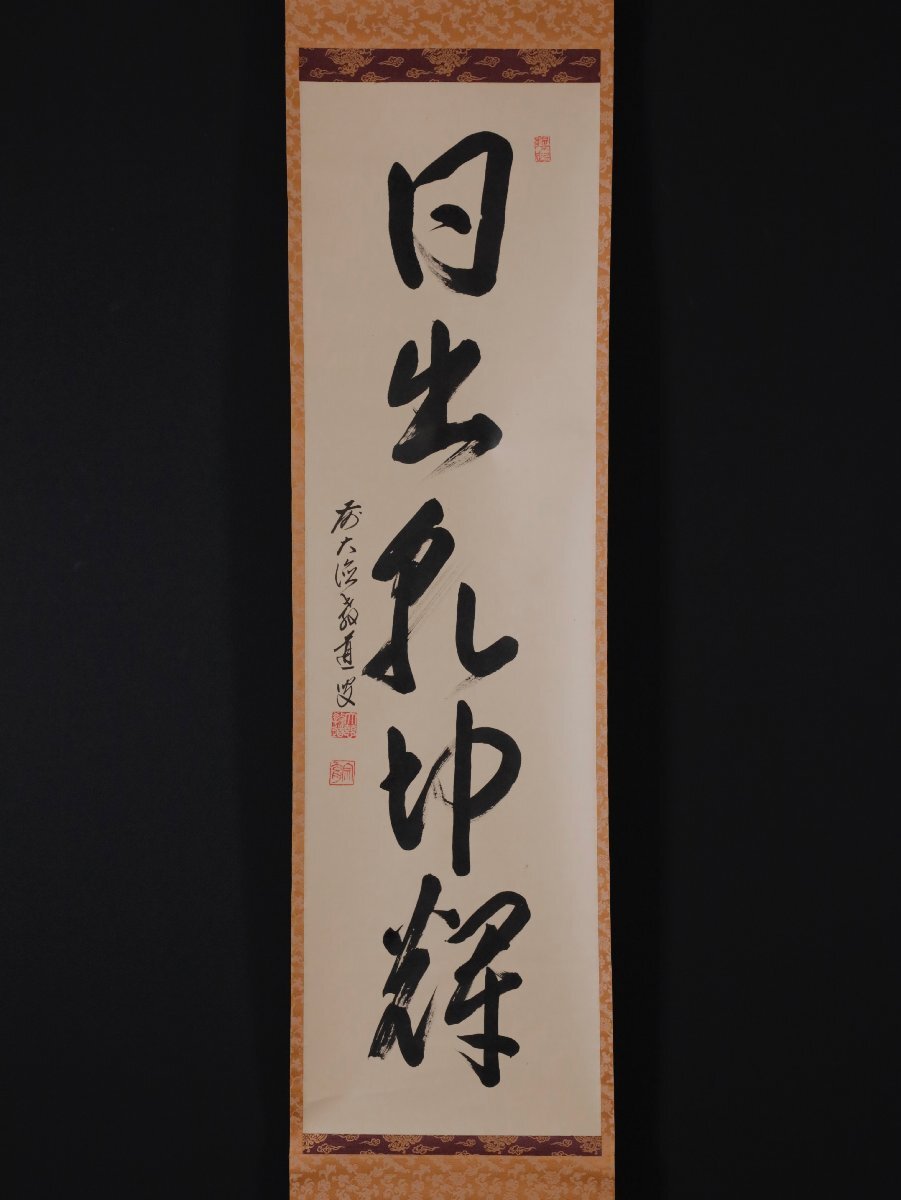 日出乾坤輝
前大徳教道叟